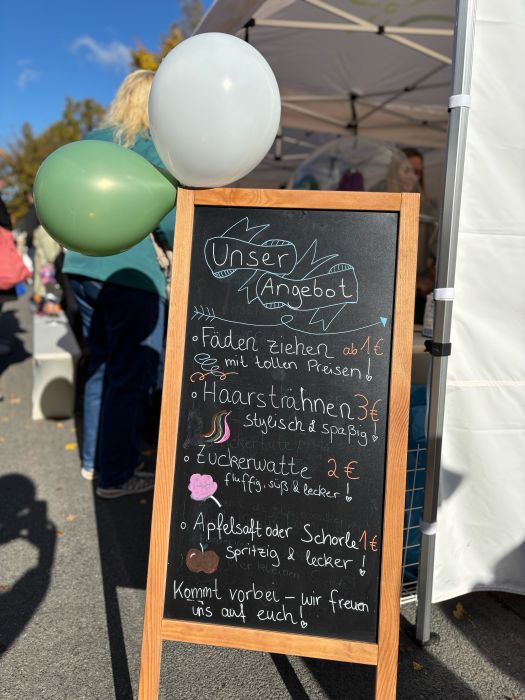 Unser
Angebot
Fäden ziehen ab 1€
mit tollen Preisen!
Haarsträhnen 3€
stylisch & spaßig!
Zuckerwatte 2€
fluffig, süß & lecker!
Apfelsaft oder Schorle 1€
spritzig & lecker!
Kommt vorbei – wir freuen
uns auf euch!